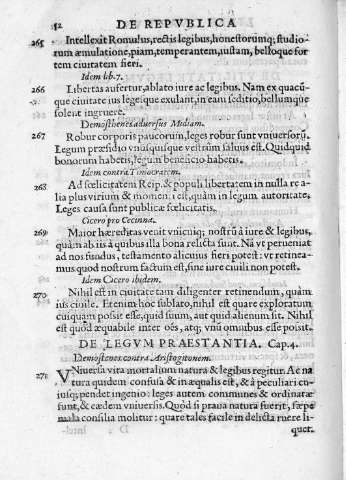 52 DE REPVBLICA
265 Intellexit Romulus, rectis legibus, honestorumq; studio-
rum æmulatione, piam, temperantem, iustam, belloque for
tem ciuitatem fieri.
Idem lib. 7.
266 Libertas aufertur, ablato iure ac legibus. Nam ex quacũ-
que ciuitate ius legesque exulant, in eam seditio, bellumque
solent ingruere.
Demosthenes aduersus Midiam.
267 Robur corporis paucorum, leges robur sunt vniuersorũ.
Legum præsidio vnusquisque vestrûm saluus est. Quidquid
bonorum habetis, legum beneficio habetis.
Idem contra Timocratem.
268 Ad fœlicitatem Reip. & populi libertatem in nulla re a-
lia plus virium & momenti est, quàm in legum autoritate.
Leges causa sunt publicæ fœlicitatis.
Cicero pro Cecinna.
269 Maior hæreditas venit vnicuiq; nostrũ à iure & legibus,
quàm ab iis à quibus illa bona relicta sunt. Nã vt perueniat
ad nos fundus, testamento alicuius fieri potest: vt retinea-
mus quod nostrum factum est, sine iure ciuili non potest.
Idem Cicero ibidem.
270 Nihil est in ciuitate tam diligenter retinendum, quàm
ius ciuile. Etenim hoc sublato, nihil est quare exploratum
cuiquam possit esse, quid suum, aut quid alienum sit. Nihil
est quod æquabile inter oẽs, atq; vnũ omnibus esse possit.
DE LEGVM PRAESTANTIA. Cap. 4.
Demostenes contra Aristogitonem.
271 VNiuersa vita mortalium natura & legibus regitur. Ac na
tura quidem confusa & inæqualis est, & à peculiari cu-
iusq; pendet ingenio: leges autem communes & ordinatæ
sunt, & eædem vniuersis. Quòd si praua natura fuerit, sæpe
mala consilia molitur: quare tales facile in delicta ruere li-
quet.